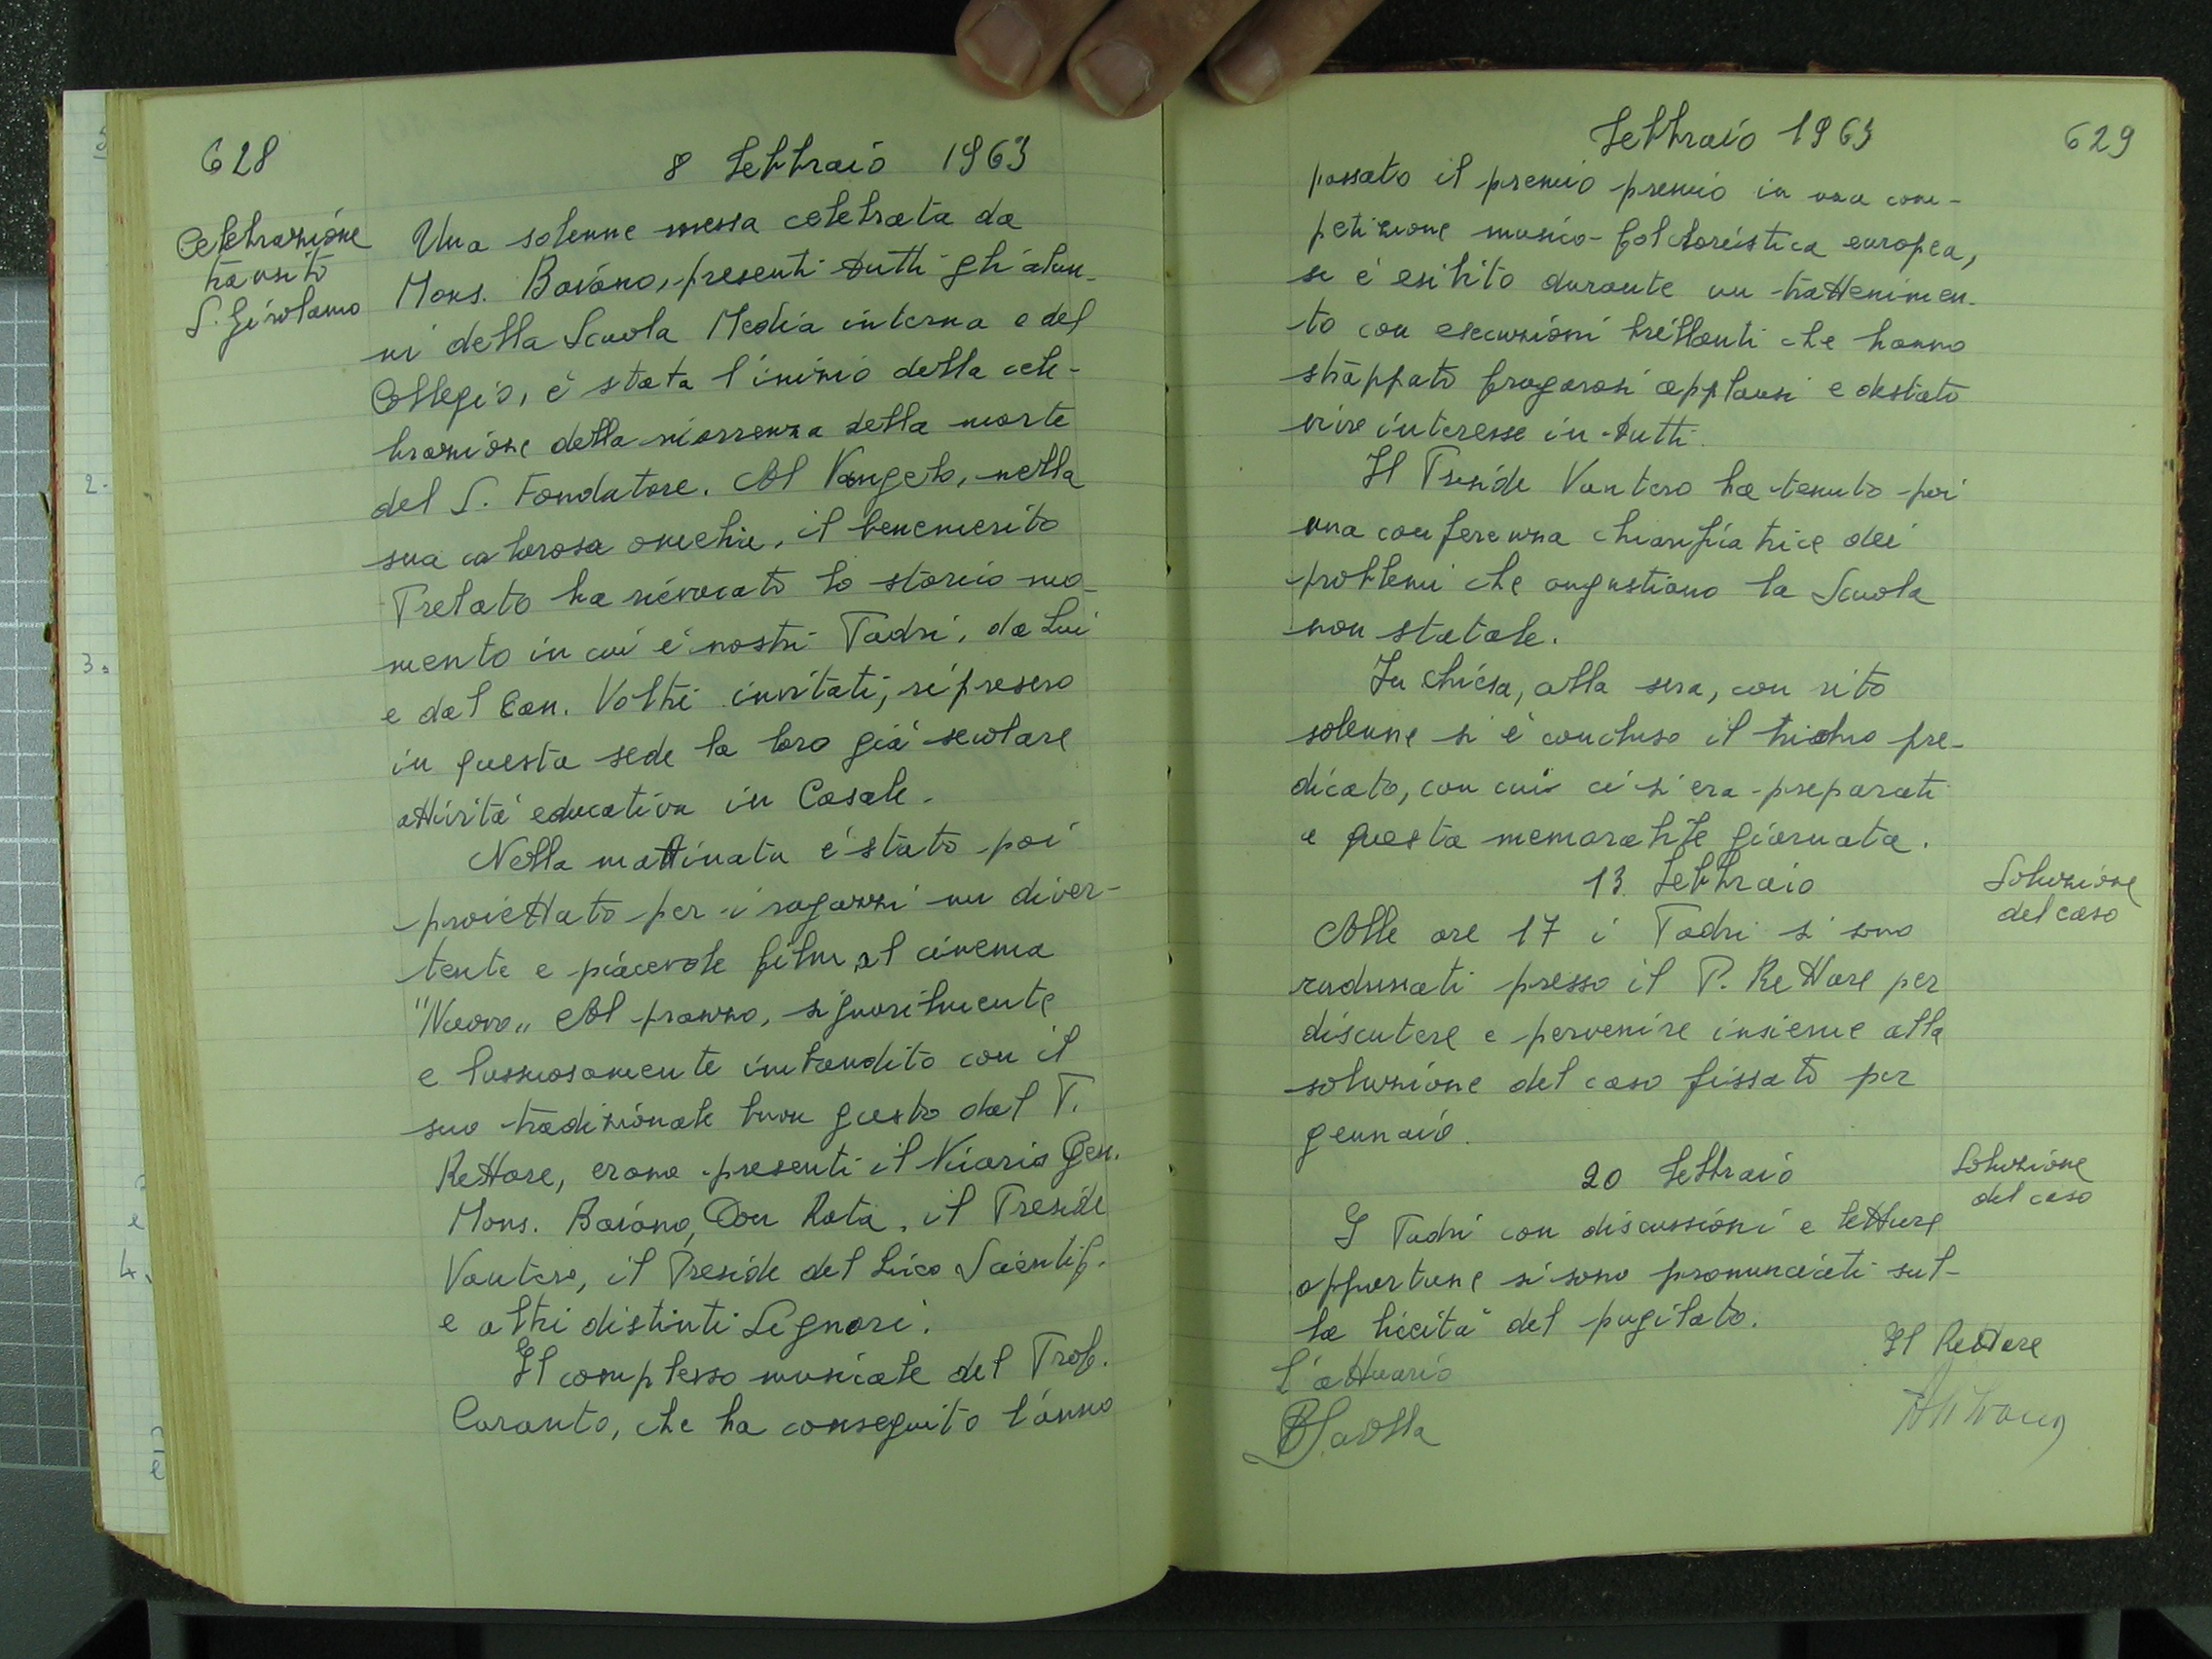 628
8 Febbraio 1963
Celebrazione
transito
S. Girolamo
Una solenne messa celebrata da
Mons. Baiano, presenti tutti gli alun-
ni della Scuola Media interna e del
Collegio, è stata l'inizio della cele-
brazione della ricorrenza della morte
del S. Fondatore. Al Vangelo, nella
sua calorosa omelia, il benemerito
Prelato ha rievocato lo storico mo-
mento in cui i nostri Padri, da Lui
e dal Can. Voltri invitati, ripresero
in questa sede la loro già secolare
attività educativa in Casale.
Nella mattinata è stato poi
proiettato per i ragazzi un diver-
tente e piacevole film al cinema
"Nuovo„ Al pranzo, signorilmente
e lussuosamente imbandito con il
suo tradizionale buon gusto dal P.
Rettore, erano presenti il Vicario Gen.
Mons. Baiano, Don Rota, il Preside
Vantero, il Preside del Liceo Scientif.
e altri distinti Signori.
Il complesso musicale del Prof.
Caranto, che ha conseguito l'anno
Febbraio 1963
629
passato il premio premio in una com-
petizione musico-folcloristica europea,
si è esibito durante un trattenimen-
to con esecuzioni brillanti che hanno
strappato fragorosi applausi e destato
vivo interesse in tutti.
Il Preside Vantero ha tenuto poi
una conferenza chiarificatrice dei
problemi che angustiano la Scuola
non statale.
In chiesa, alla sera, con rito
solenne si è concluso il triduo pre-
dicato, con cui ci si era preparati
a questa memorabile giornata.
13 Febbraio
Soluzione
del caso
Alle ore 17 i Padri si sono
radunati presso il P. Rettore per
discutere e pervenire insieme alla
soluzione del caso fissato per
gennaio.
20 Febbraio
Soluzione
del caso
I Padri con discussioni e letture
opportune si sono pronunciati sul-
la liceità del pugilato.
Il Rettore
L'attuario
2.
3.
4.